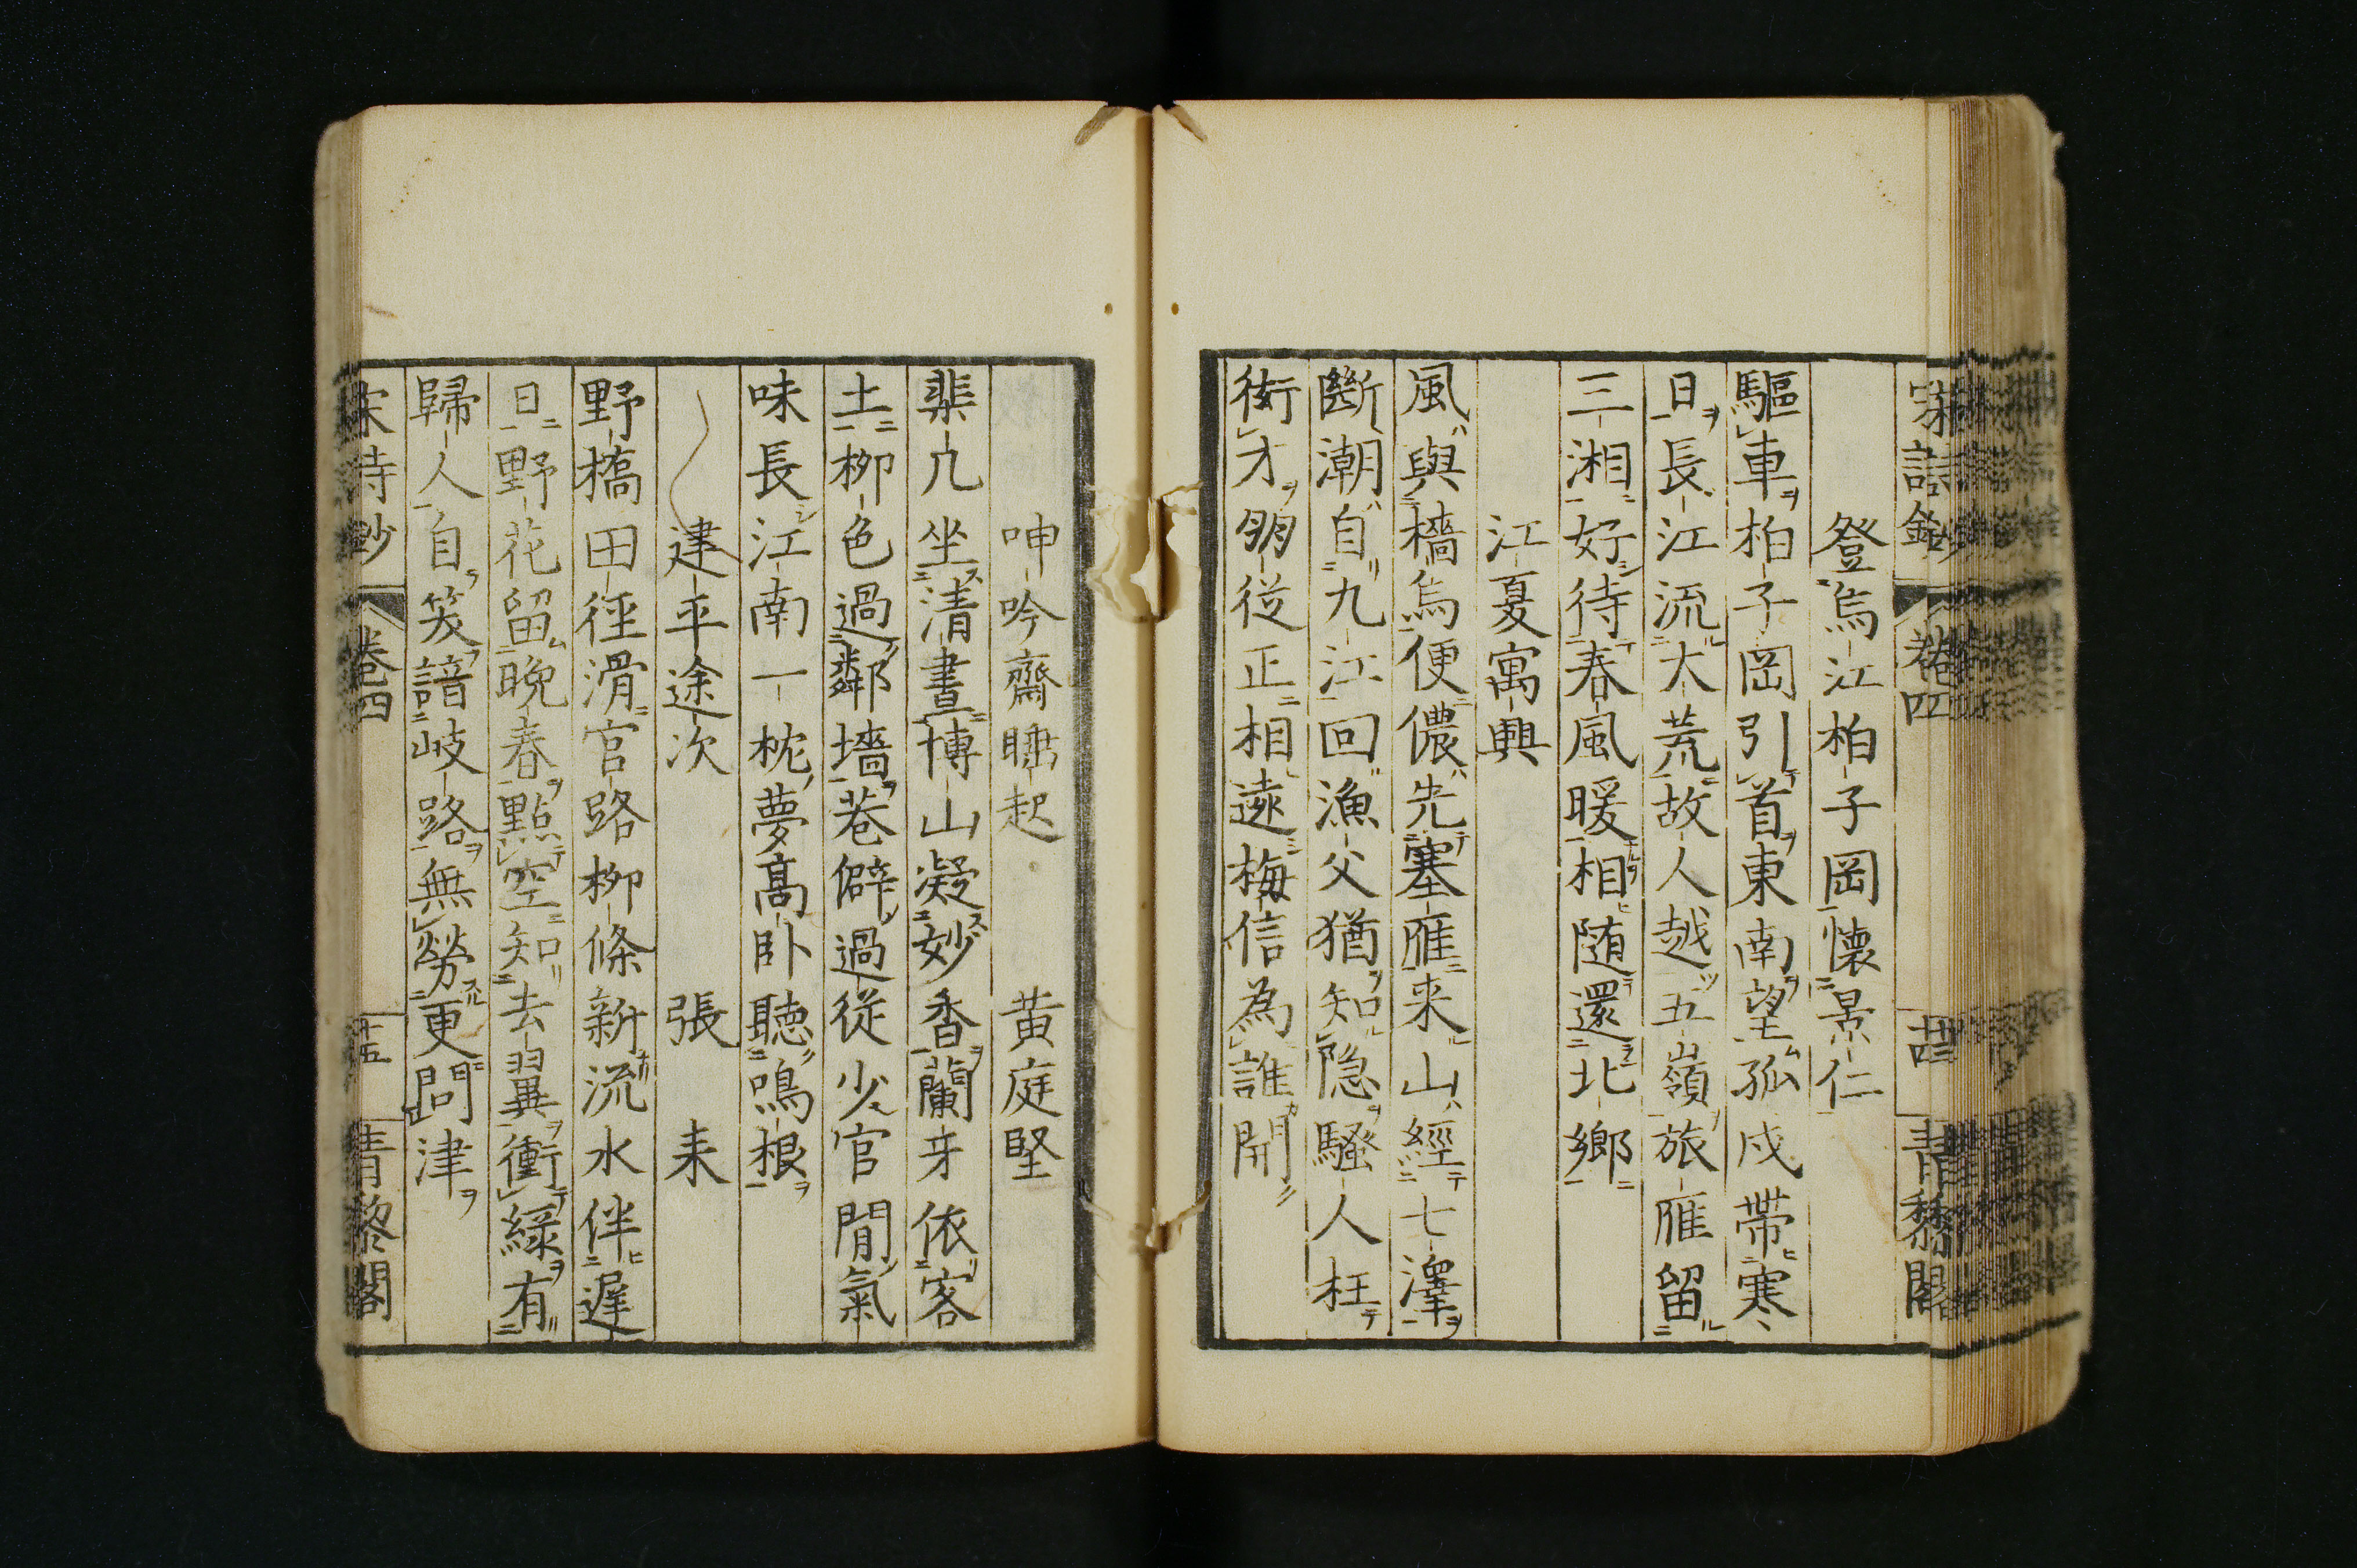 宋詩鈔 卷四 廿四 青藜閣
登烏江柏子岡懷景仁
驅車柏子岡引首東南望孤戍帶寒
日長江流大荒故人越五嶺旅雁留
三湘好待春風暖相随還北鄉
江夏寓興
風與檣烏便儂先塞雁来山經七澤
斷潮自九江回漁父猶知隐騷人枉
衒才朋從正相遠梅信為誰開
呻吟齋睡起 黄庭堅
棐几坐清晝博山凝妙香蘭牙依客
土柳色過鄰墻巷僻過從少官閒氣
味長江南一枕夢高卧聽鳴根
建平途次 張耒
野橋田徑滑官路柳條新流水伴遲
日野花留晚春點空知去翼衝綠有
歸人自笑諳岐路無勞更問津
宋詩鈔 卷四 廿五 青藜閣